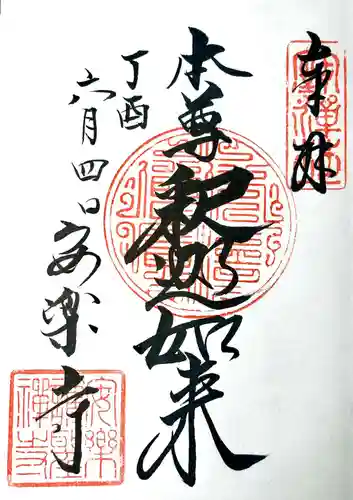 奉拜
本尊釈迦如来
丁酉
六月四日安楽寺